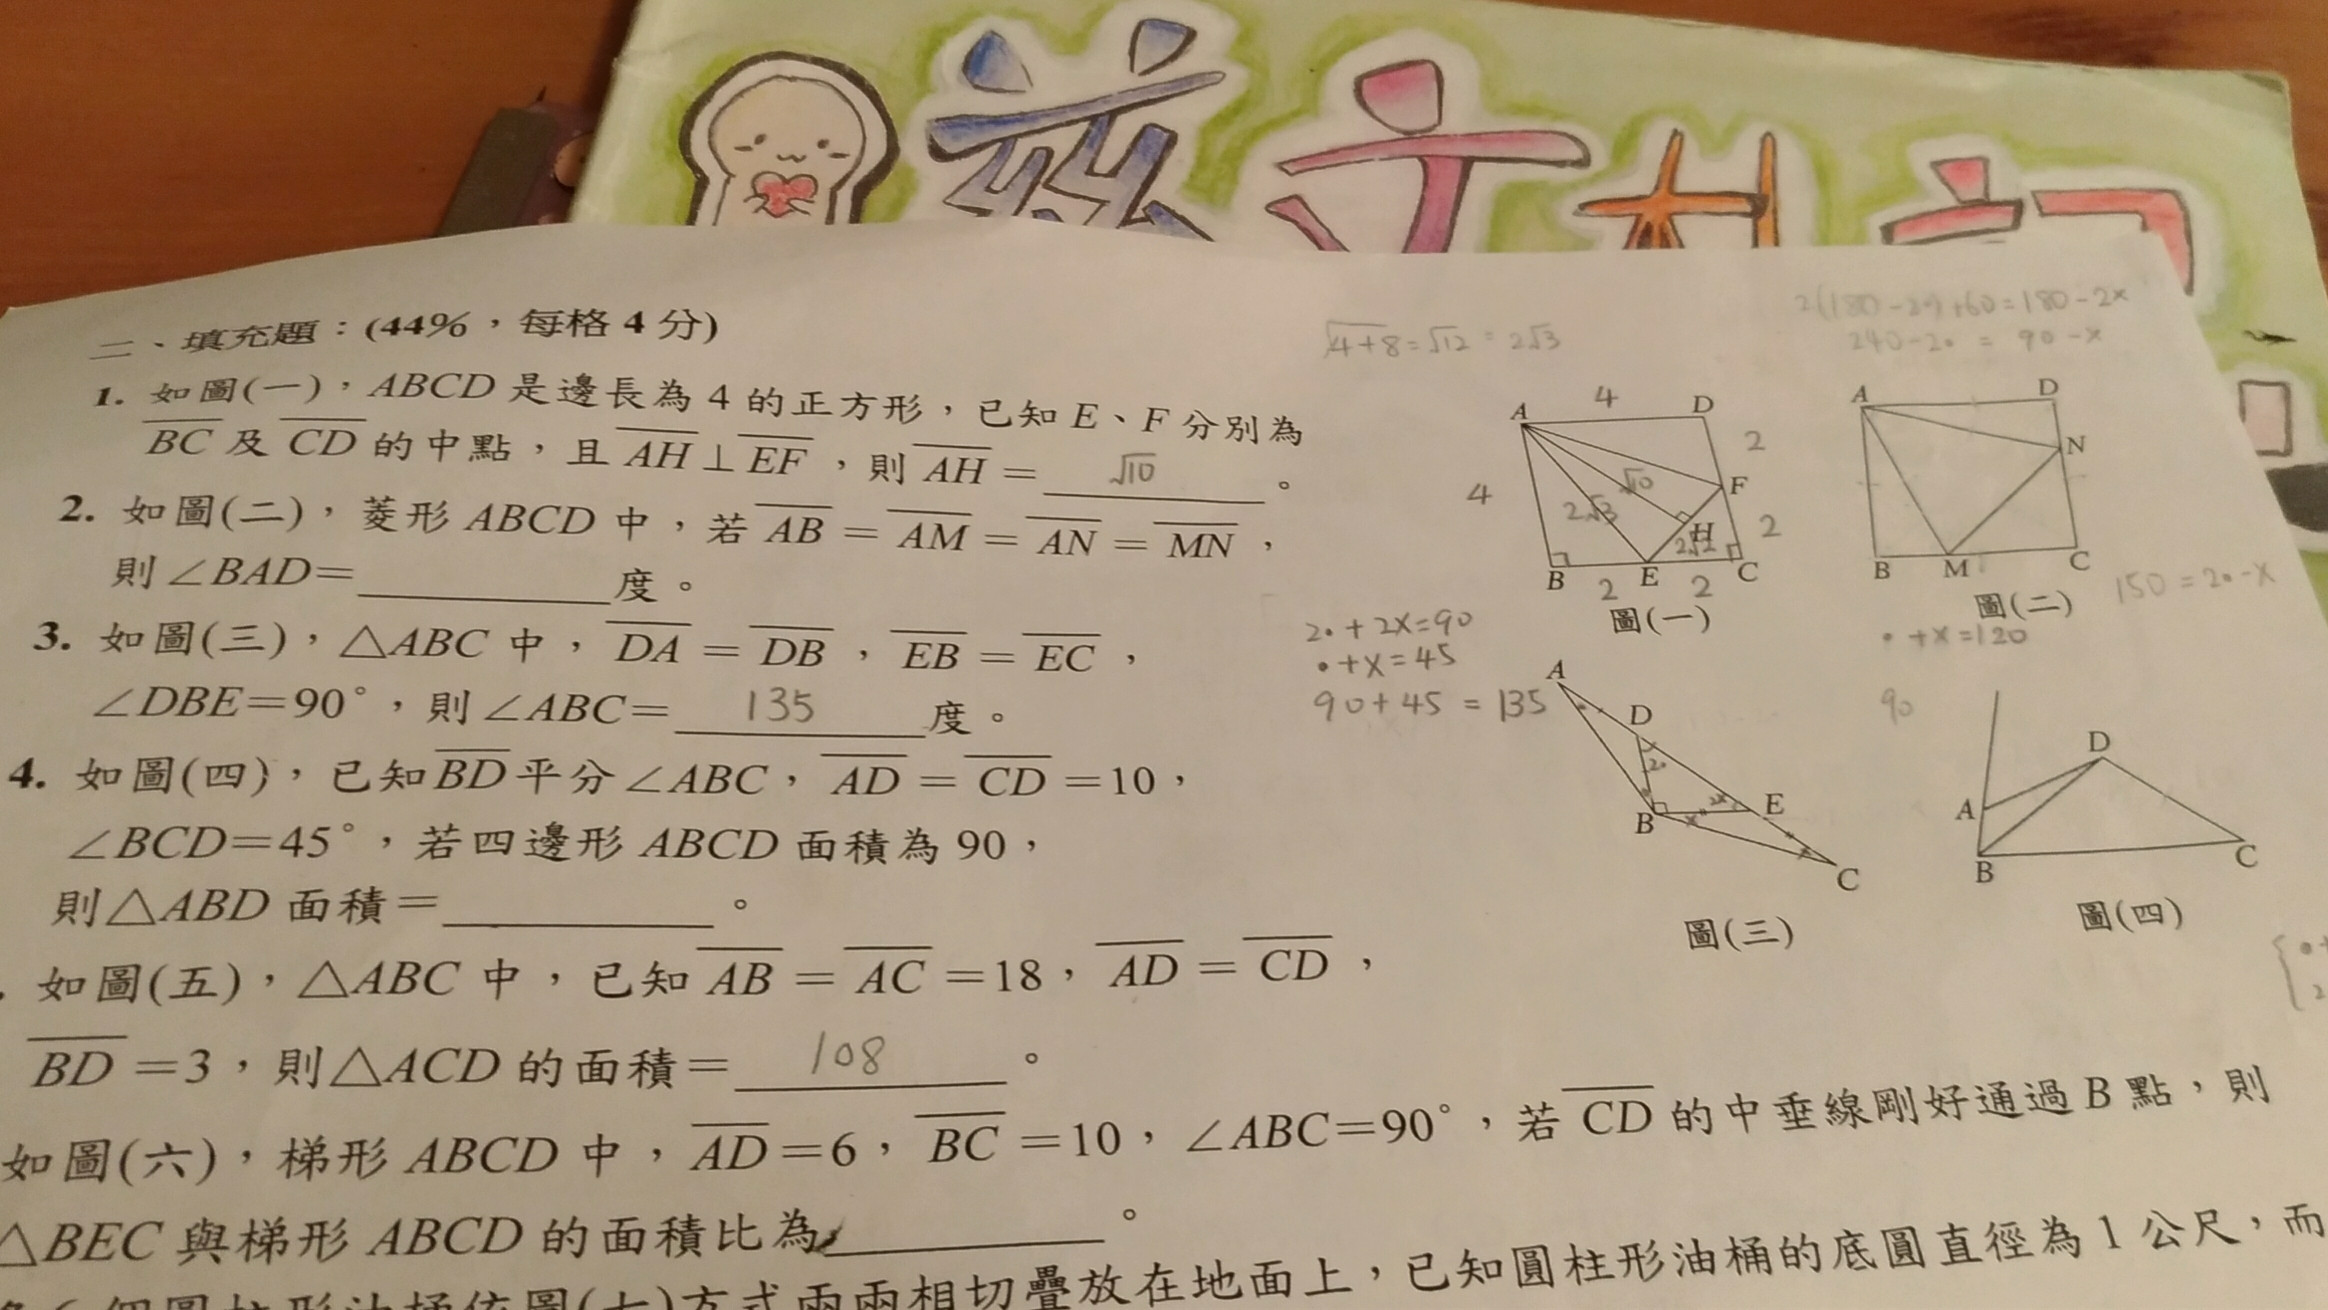 二、填充題：(44%，每格 4 分)
1. 如圖(一)，ABCD 是邊長為 4 的正方形，已知 E、F 分別為
BC 及 CD 的中點，且 AH⊥EF，則 AH = √10 。
2. 如圖(二)，菱形 ABCD 中，若 AB = AM = AN = MN，
則∠BAD=度。
3. 如圖(三)，△ABC 中，DA = DB，EB = EC，
∠DBE=90°，則∠ABC= 135 度。
4. 如圖(四)，已知BD平分∠ABC，AD = CD =10，
∠BCD=45°，若四邊形 ABCD 面積為 90，
則△ABD 面積=。
如圖(五)，△ABC 中，已知 AB = AC =18，AD = CD，
BD =3，則△ACD 的面積= 108 。
如圖(六)，梯形 ABCD 中，AD=6，BC =10，∠ABC=90°，若 CD 的中垂線剛好通過 B 點，則
△BEC 與梯形 ABCD 的面積比為。
個圓柱形油桶依圖(七)方式兩兩相切疊放在地面上，已知圓柱形油桶的底圓直徑為 1 公尺，而
√4+8=√12=2√3
240-2• = 90-x
A 4 D
2
F
4
2√3 √10
H
2
2√2
B 2 E 2 C
圖(一)
A D
N
B M C
圖(二)
150=2•-x
•+x=120
90
2•+2x=90
•+x=45
90+45=135
A
D
2•
B x 2x E
C
圖(三)
D
A
B C
圖(四)